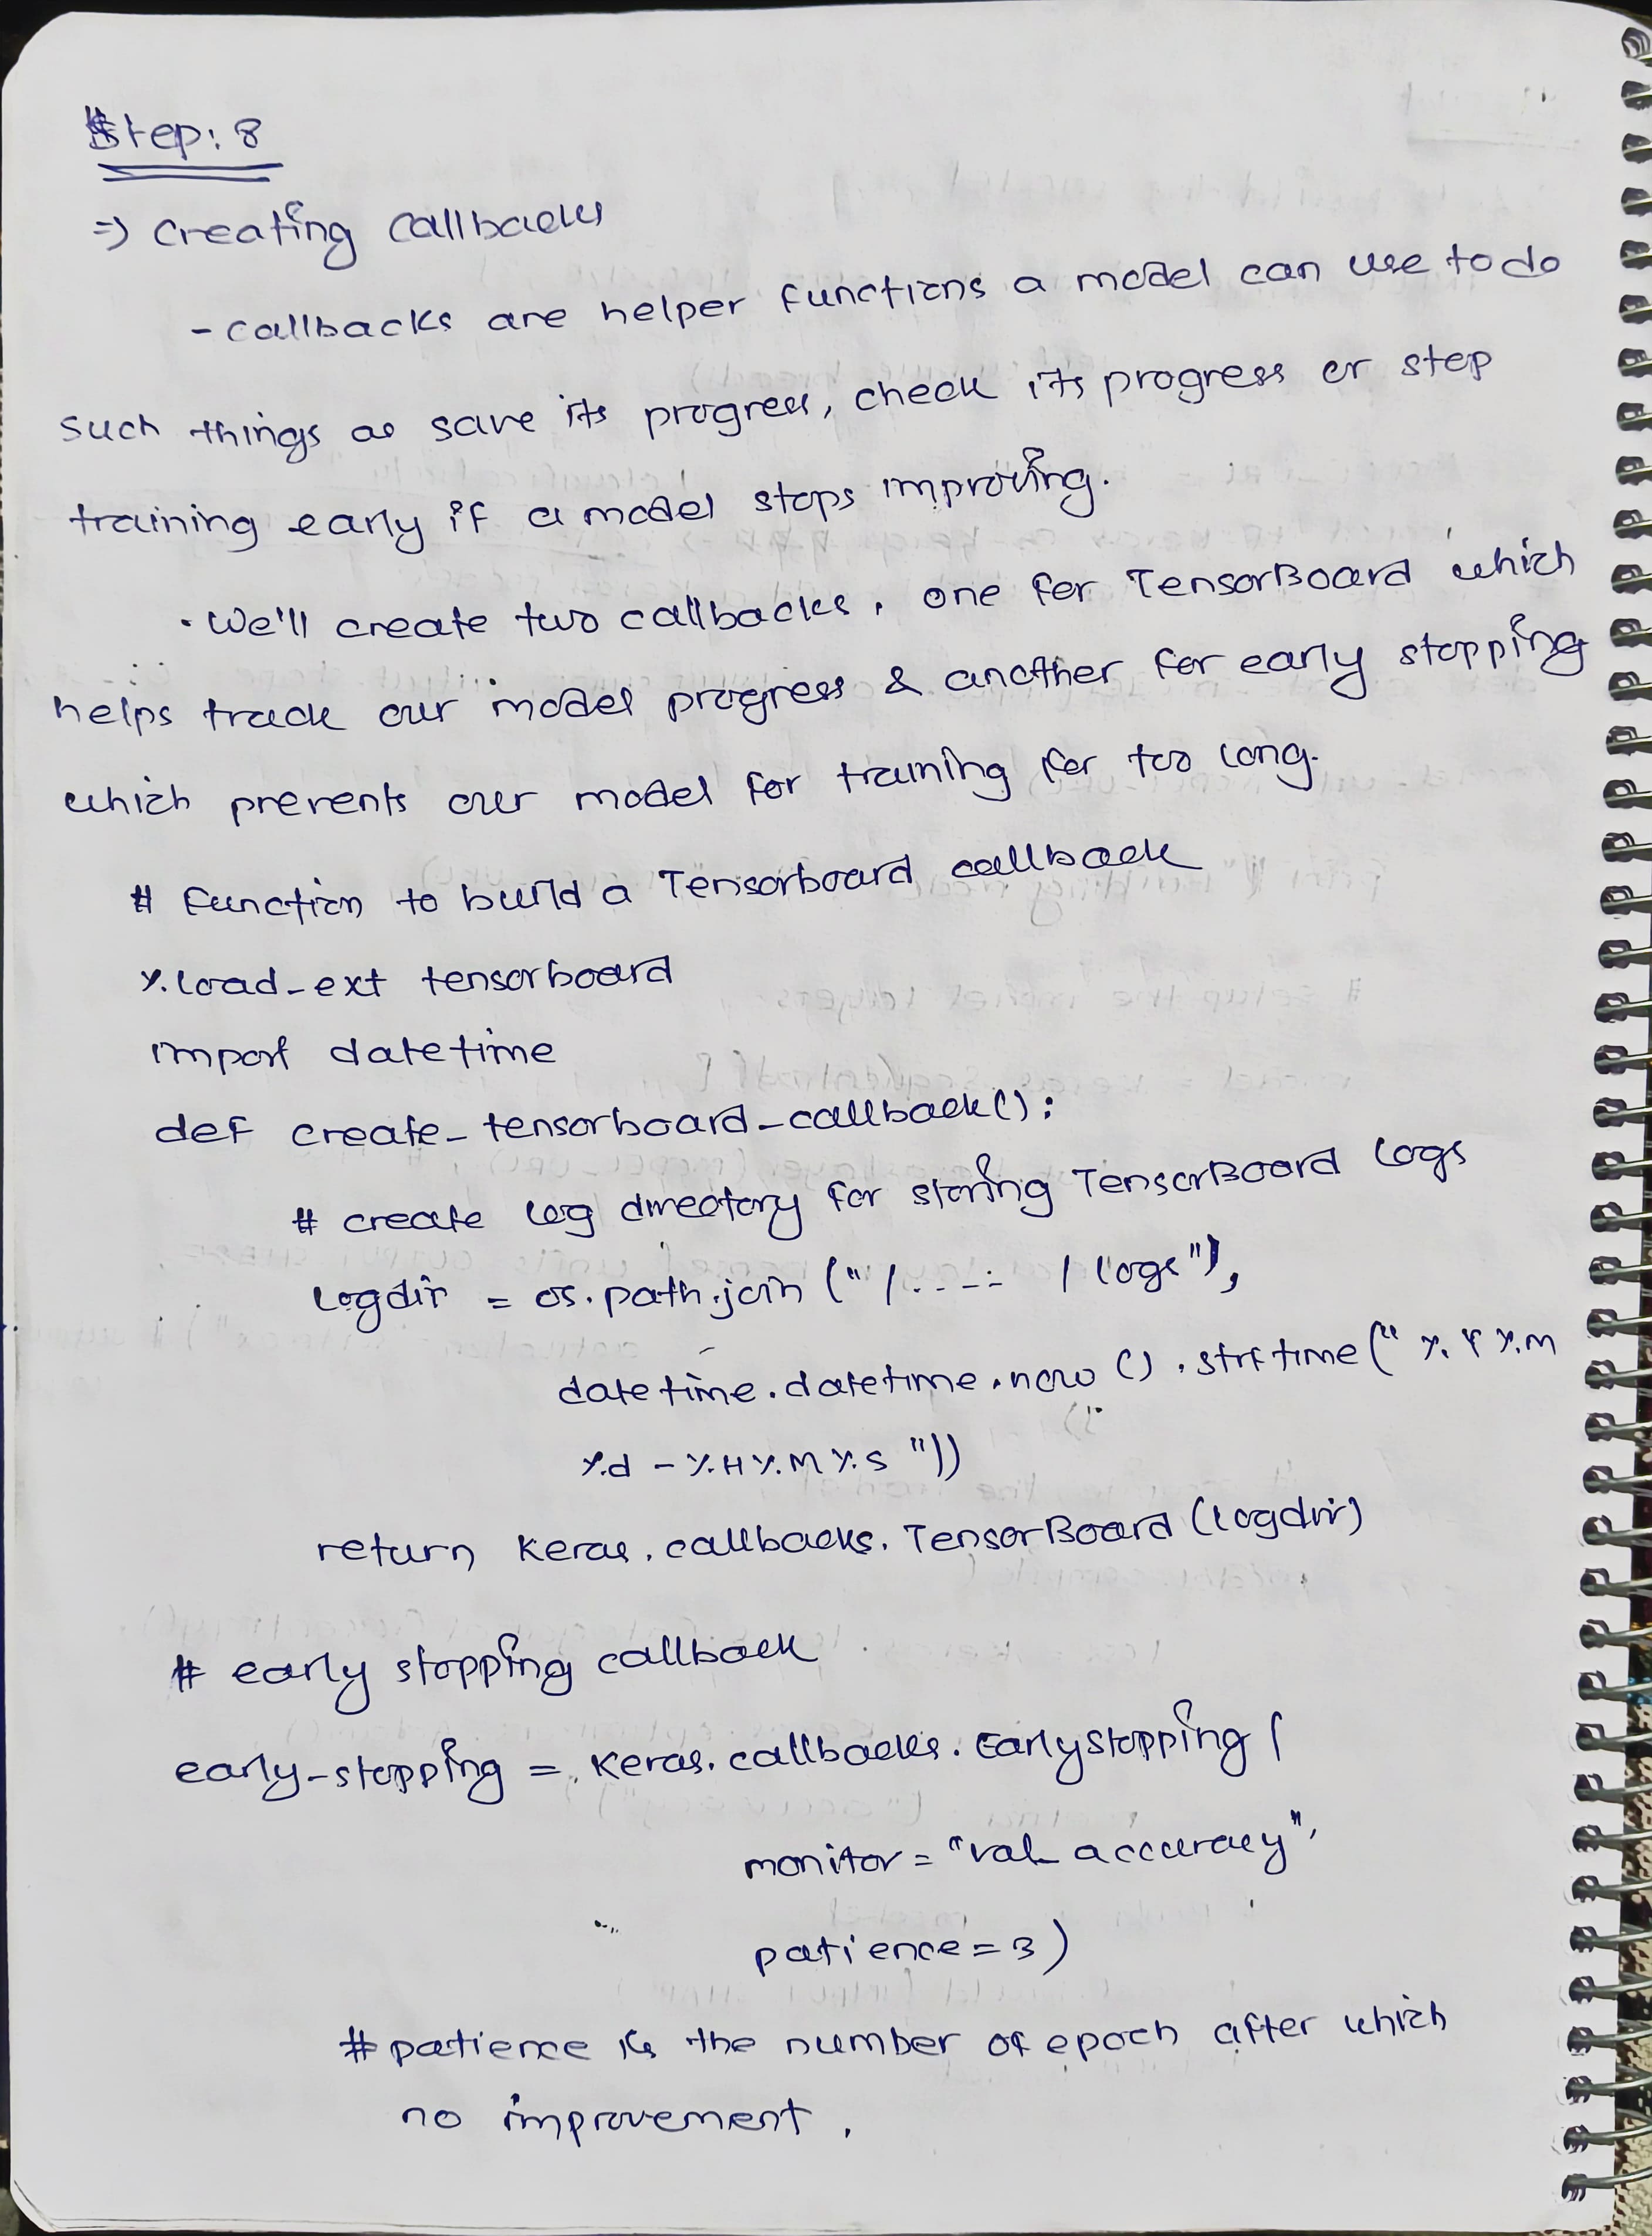 Step: 8
=> Creating Callbacks
- callbacks are helper functions a model can use to do
such things as save its progress, check its progress or stop
training early if a model stops improving.
• We'll create two callbacks, one for TensorBoard which
helps track our model progress & another for early stopping
which prevents our model for training for too long.
# function to build a Tensorboard callback
%load_ext tensorboard
import datetime
def create_tensorboard_callback():
# create log directory for storing TensorBoard logs
logdir = os.path.join("/....- /logs"),
datetime.datetime.now().strftime("%Y%m
%d-%H%M%S"))
return keras.callbacks.TensorBoard(logdir)
# early stopping callback
early_stopping = keras.callbacks.EarlyStopping(
monitor="val_accuracy",
patience=3)
#patience is the number of epoch after which
no improvement.